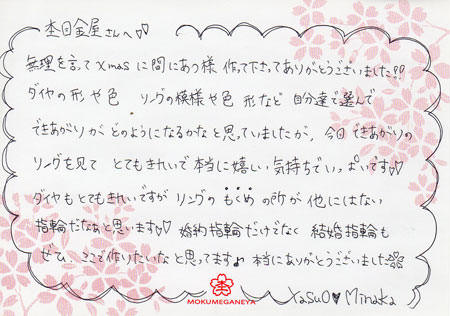 杢目金屋さんへ♡♡
無理を言ってXmasに間にあう様 作って下さってありがとうございました!!
ダイヤの形や色 リングの模様や色 形など 自分達で選んで
できあがりが、どのようになるかなと思っていましたが、今日 できあがりの
リングを見て とてもきれいで本当に嬉しい気持ちでいっぱいです♡♡
ダイヤもとてもきれいですが リングの もくめ の所が 他にはない
指輪だなぁと思います♡♡ 婚約指輪だけでなく 結婚指輪も
ぜひ、ここで作りたいなと思ってます♪ 本当にありがとうございました
MOKUMEGANEYA
YasuO♥Minaka